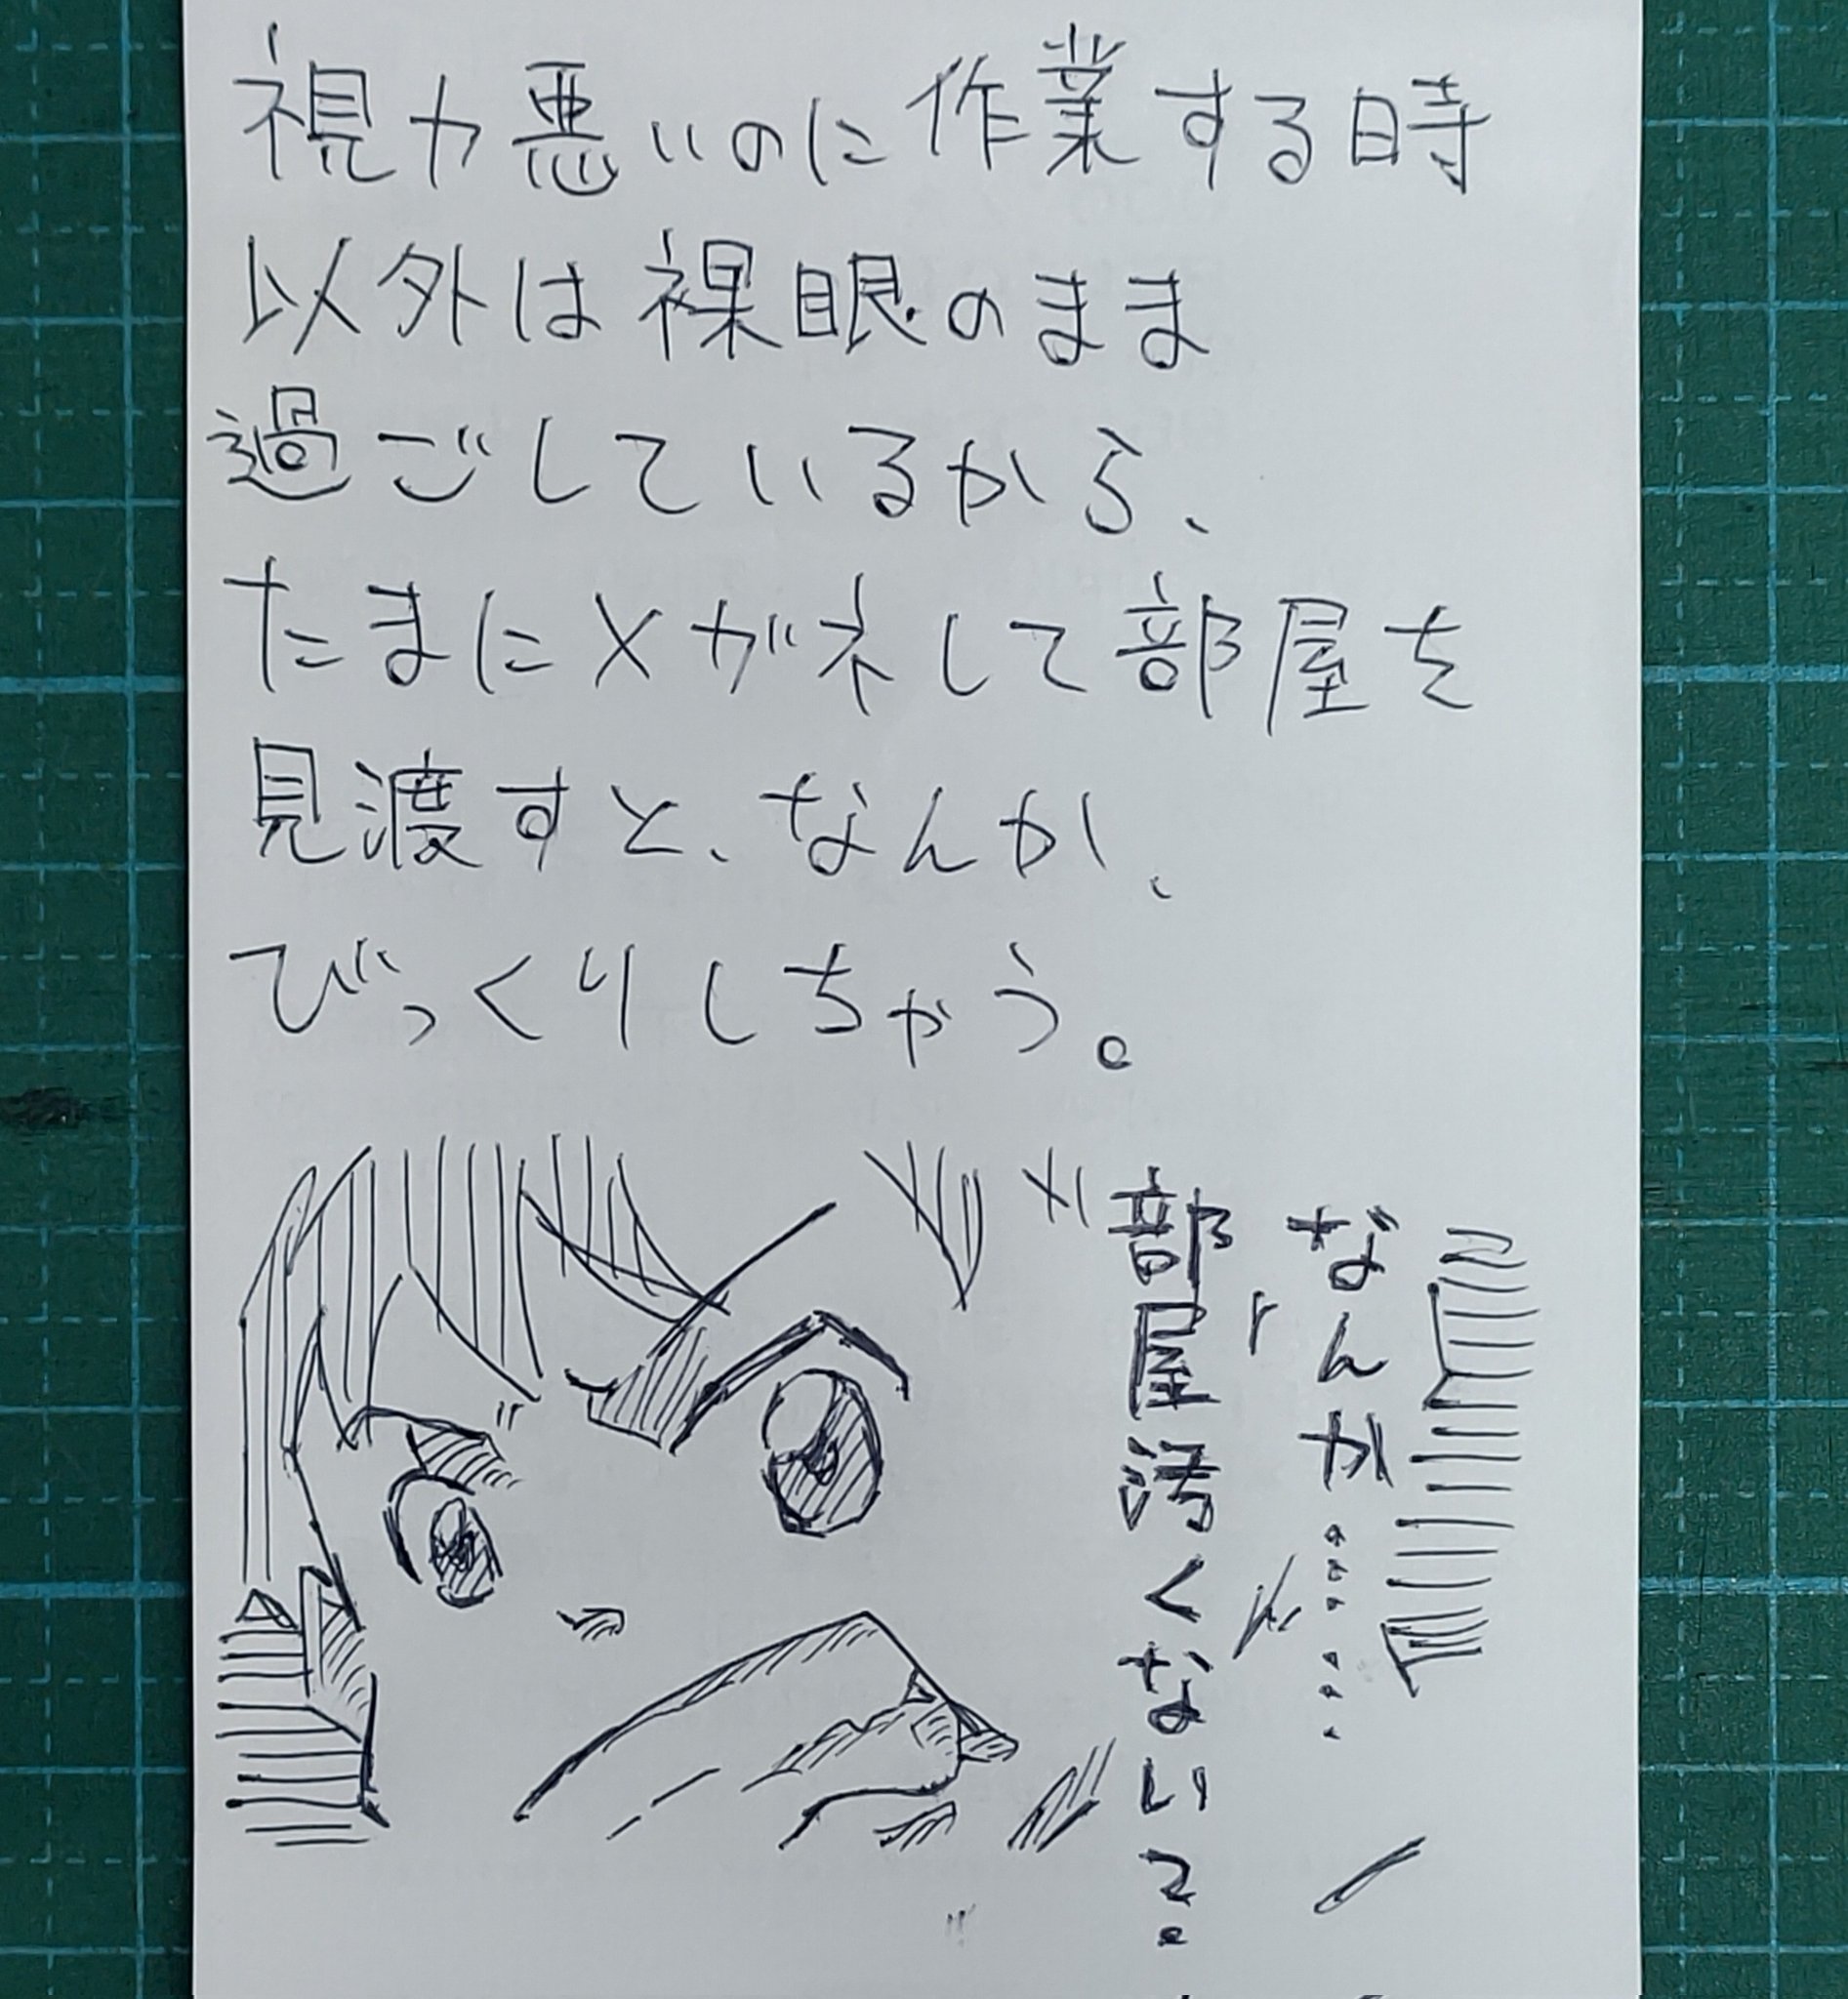 視力悪いのに作業する時
以外は裸眼のまま
過ごしているから、
たまにメガネして部屋を
見渡すと、なんか、
びっくりしちゃう。
なんか……
部屋汚くない?